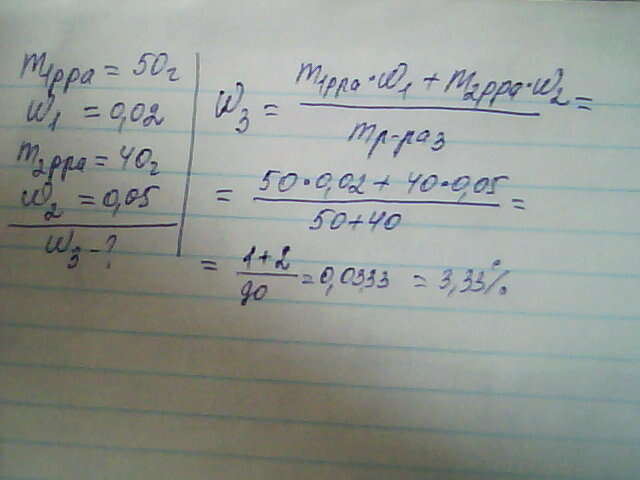 m₁рра = 50г
w₁ = 0,02
m₂рра = 40г
w₂ = 0,05
w₃ - ?
w₃ = (m₁рра · w₁ + m₂рра · w₂) / mр-ра₃ =
= (50 · 0,02 + 40 · 0,05) / (50+40) =
= (1+2) / 90 = 0,0333 = 3,33%